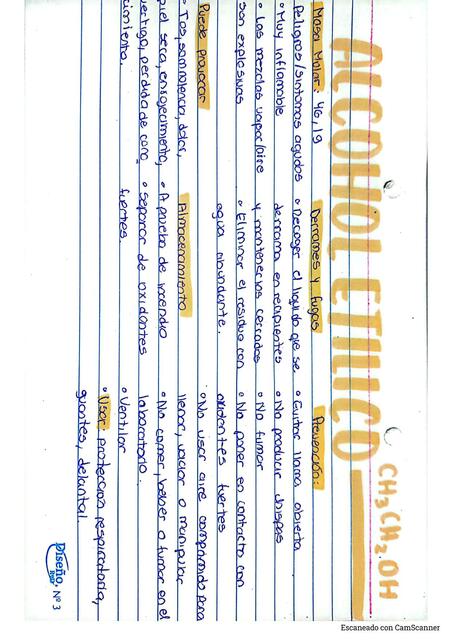 ALCOHOL ETILICO
CH₃CH₂OH
Masa Molar: 46,19
Peligros/sintomas agudos
• Muy inflamable
• Las mezclas vapor/aire
son explosivas
Puede provocar
• Tos, somnolencia, dolor,
piel seca, enrojecimiento,
vertigo, perdida de cono
cimiento.
Derrames y fugas
• Recoger el liquido que se
derrama en recipientes
y mantenerlos cerrados
• Eliminar el residuo con
agua abundante.
Almacenamiento
• A prueba de incendio
• Separar de oxidantes
fuertes
Prevención:
• Quitar llama abierta
• No producir chispas
• No fumar
• No poner en contacto con
oxidantes fuertes
• No usar aire comprimido para
llenar, vaciar o manipular
• No comer, beber o fumar en el
laboratorio.
• Ventilar
• Usar: protección respiratoria,
guantes, delantal.
Diseño, Nº 3
Escaneado con CamScanner